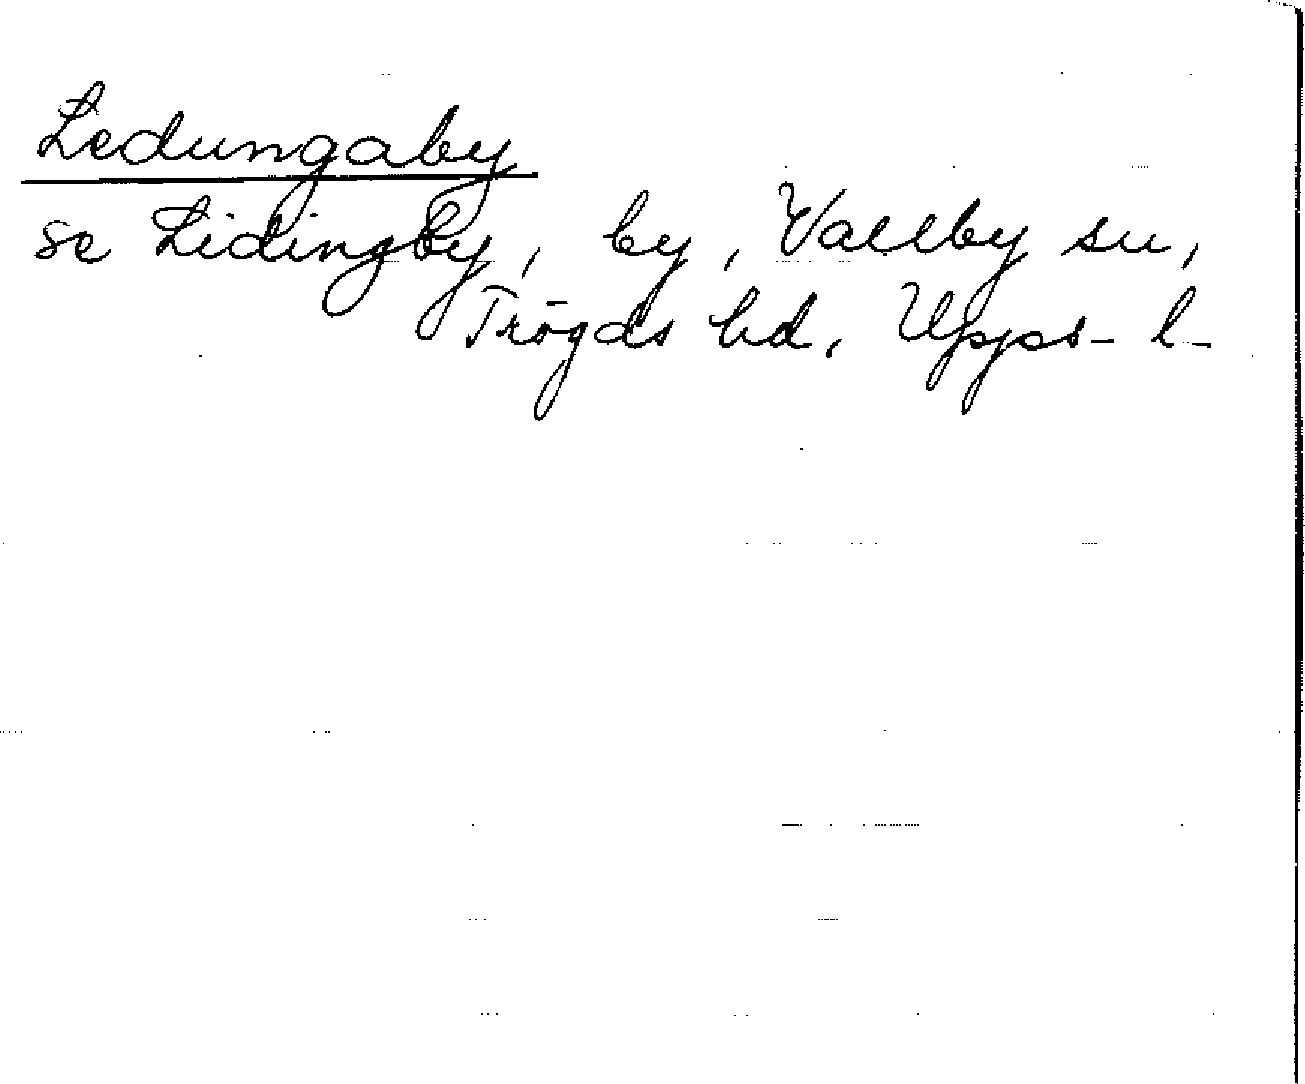 Ledungaby
se Lidingby, by, Vallby sn,
Trögds hd, Upps- l-